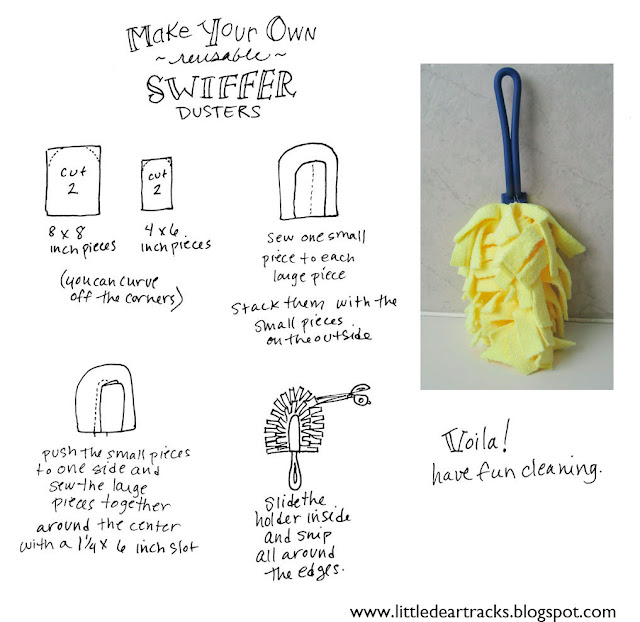 Make Your Own
~ reusable ~
SWIFFER
DUSTERS
cut
2
8 x 8
inch pieces
cut
2
4 x 6
inch pieces
(you can curve
off the corners)
sew one small
piece to each
large piece
stack them with the
small pieces
on the outside
push the small pieces
to one side and
sew the large
pieces together
around the center
with a 1 1/4 x 6 inch slot
slide the
holder inside
and snip
all around
the edges.
Voila!
have fun cleaning.
www.littledeartracks.blogspot.com